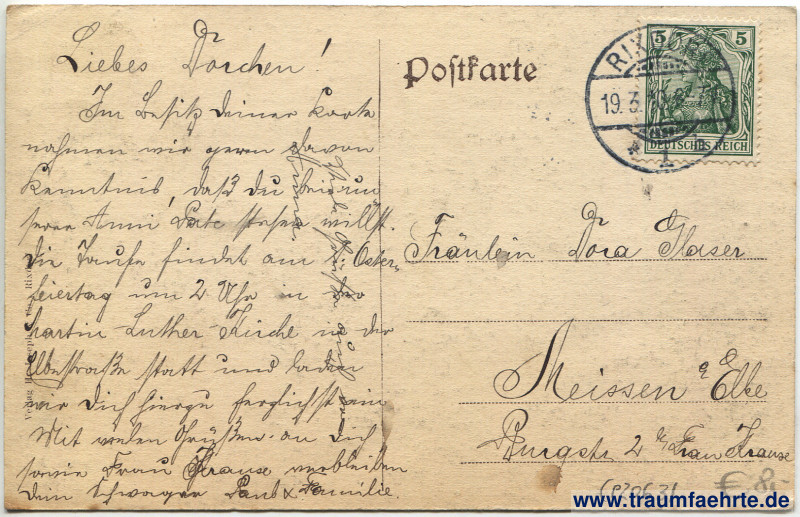 Liebes Dorchen!
Im Besitz deiner Karte
nahmen wir gern davon
Kenntnis, daß du bei un
serer Anni Pate stehen willst.
Die Taufe findet am 1. Oster-
feiertag um 2 Uhr in der
Martin-Luther-Kirche in der
Elbestraße statt und laden
wir Dich hierzu herzlichst ein
Mit vielen Grüßen an Dich
sowie Frau Krause verbleiben
dein Schwager Paul & Familie.
Postkarte
5 5
DEUTSCHES REICH
RIX
19.3.
* 1
Fräulein Dora Glaser
Meissen a/Elbe
Burgstr. 2 b/ Frau Krause
€ 8,-
www.traumfaehrte.de